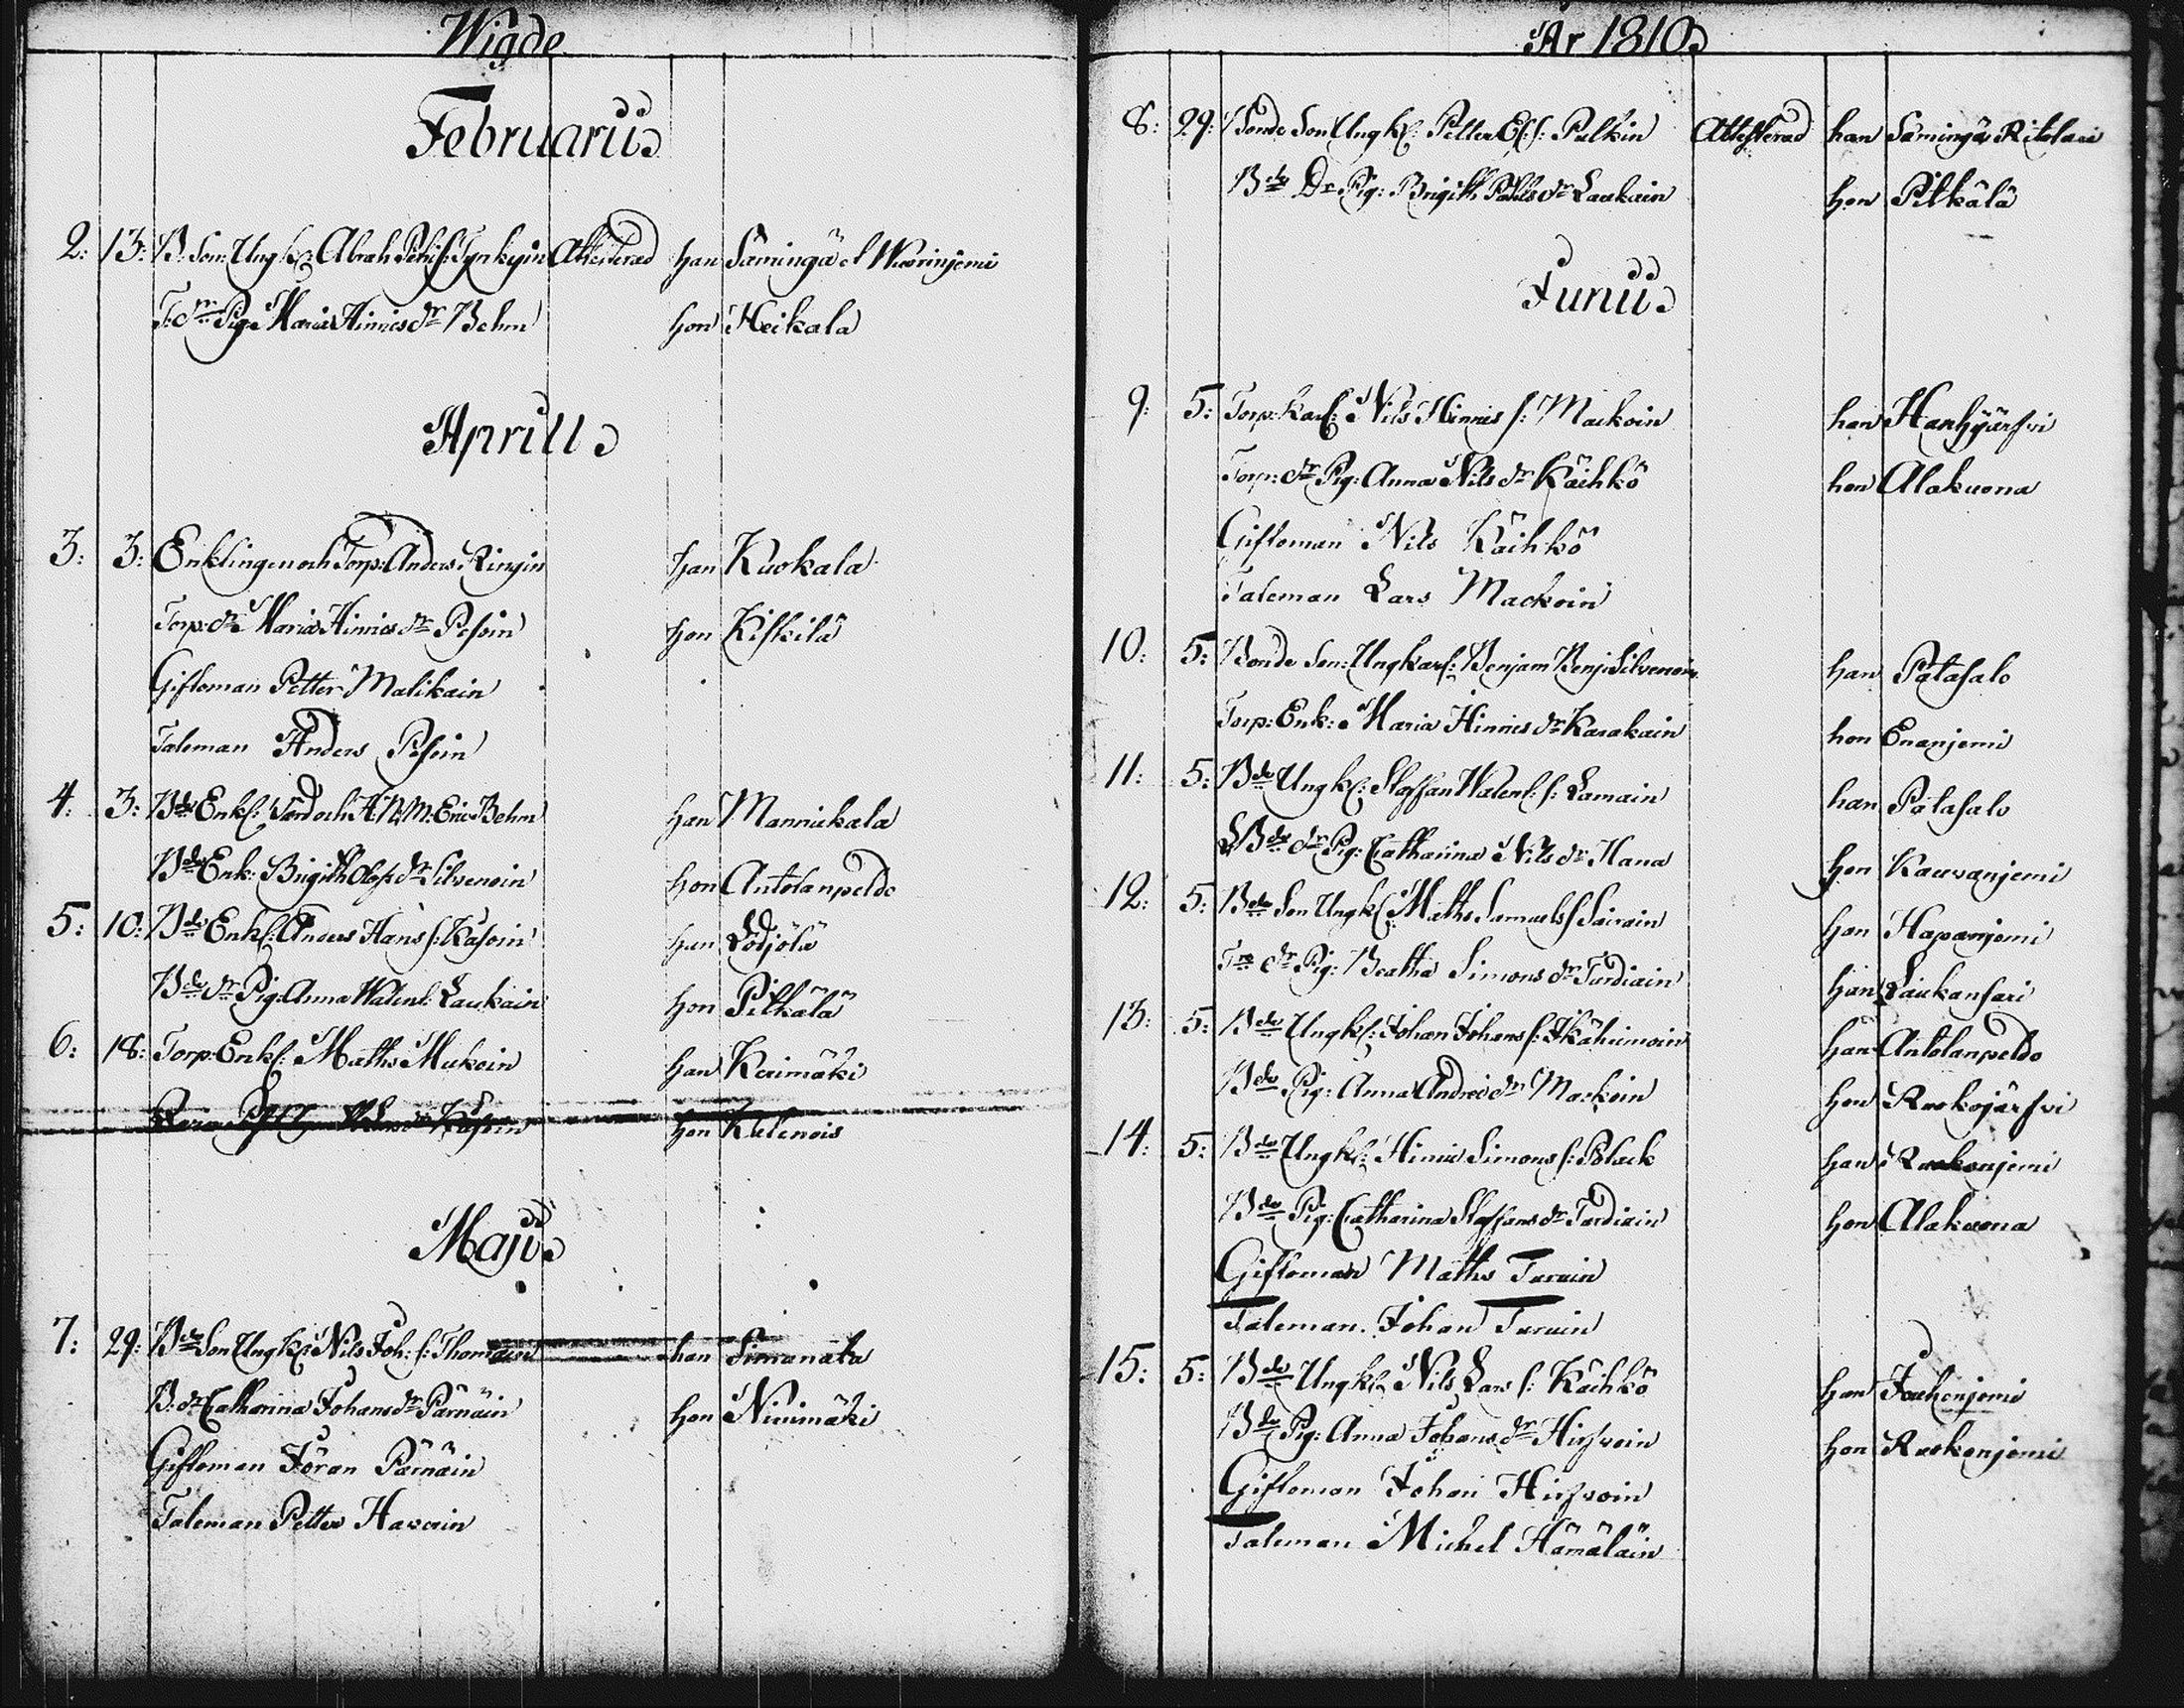 Wigde
Februarii
2: 13: B: Son: Ungk: Abrah Pehrs: Tynkyin Attesterad han Sämingä el Wuorinjemi
T: dr Pig: Maria Hinrics dr Behm hon Heikala
Aprill
3: 3: Enklingen och Torp: Anders Ringin han Kuokala
Torp: dr Maria Hinrics dr Pesoin hon Kiskilä
Giftoman Petter Malikain
Taleman Anders Pesoin
4: 3: Bde Enkl: Eric Behm han Mannikala
Bde Enk: Brigith Olofs dr Silvenoin hon Antolanpeldo
5: 10: Bde Enkl: Anders Hans s: Kåsoin han Lödjölä
Bde dr Pig: Anna Walent: Laukain hon Pitkälä
6: 18: Torp: Enkl: Maths Mukoin han Kerimäki
hon Kulenois
Maji
7: 29: Bde Son Ungk: Nils Joh: s: Thomain han Simanata
B: dr Catharina Johans dr Pärnäin hon Niinimäki
Giftoman Jöran Pärnäin
Taleman Petter Haverin
År 1810
8: 29: Bonde Son Ungk: Petter Er: s: Pulkin Attesterad han Sämingä Ritolax
Bde Dr Pig: Brigith Påhls dr Laukain hon Pitkälä
Junii
9: 5: Torp: Karl: Nils Hinrics s: Mackoin han Hanhijärfvi
Torp: dr Pig: Anna Nils dr Käihkö hon Alakuona
Giftoman Nils Käihkö
Taleman Lars Mackoin
10: 5: Bonde Son: Ungkarl: Benjam Benj: Silvenoin han Patasalo
Torp: Enk: Maria Hinrics dr Karakain hon Enanjemi
11: 5: Bde Ungk: Staffan Walent: s: Lamain han Patasalo
Bde dr Pig: Catharina Nils dr Hana hon Kauvanjemi
12: 5: Bde Son Ungk: Maths Samuels s Sairain han Hapanjemi
Tre dr Pig: Beatha Simons dr Turdiain han Laukansari
13: 5: Bde Ungk: Johan Johans s: Ikäheimoin han Antolanpeldo
Bde Pig: Anna Andres dr Mackoin hon Ruokojärfvi
14: 5: Bde Ungk: Hinric Simons s: Polack han Ruokonjemi
Bde Pig: Catharina Staffans dr Turdiain hon Alakuona
Giftoman Maths Turuin
Taleman. Johan Turuin
15: 5: Bde Ungk: Nils Lars s: Käihkö han Jouhenjemi
Bde Pig: Anna Johans dr Hirfvoin hon Ruokonjemi
Giftoman Johan Hirfvoin
Taleman Michel Hämäläin